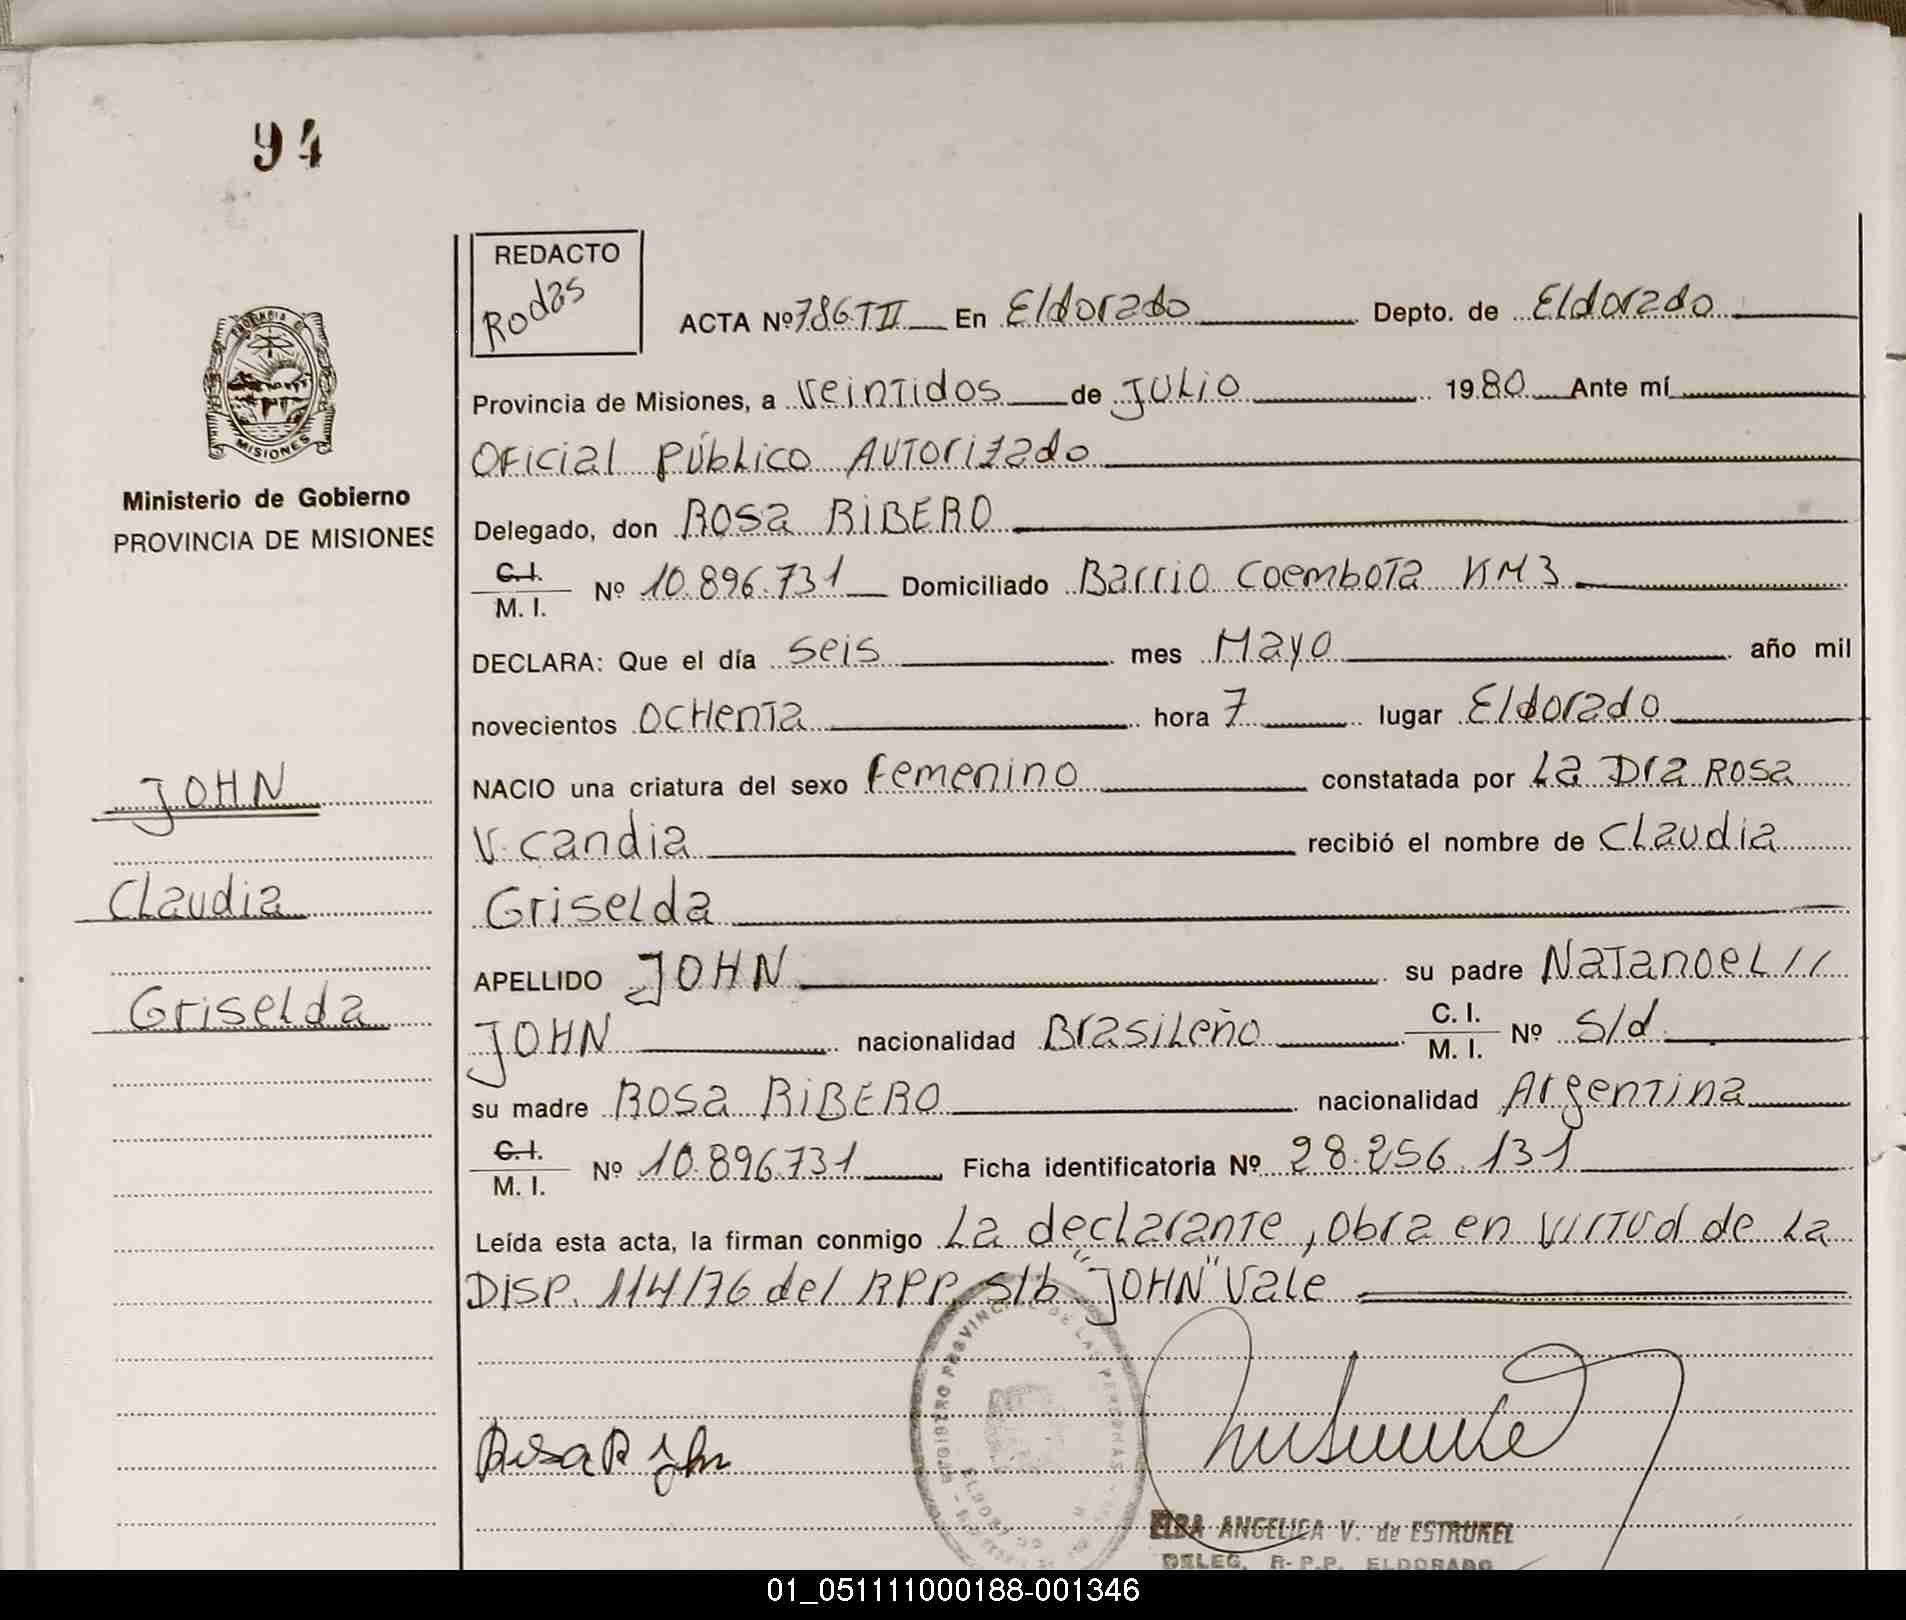 94
REDACTO
Rodas
ACTA Nº 786 TII En Eldorado Depto. de Eldorado
Provincia de Misiones, a Veintidos de JULIO 1980 Ante mí
Oficial Público Autorizado
Ministerio de Gobierno
PROVINCIA DE MISIONES
Delegado, don ROSA RIBERO
C.I. M. I. Nº 10.896.731 Domiciliado Barrio Coembota KM 3
DECLARA: Que el día seis mes Mayo año mil
novecientos OCHenta hora 7 lugar Eldorado
JOHN
NACIO una criatura del sexo femenino constatada por La Dra Rosa
V. Candia recibió el nombre de Claudia
Claudia
Griselda
APELLIDO JOHN su padre Natanoel //
Griselda
JOHN nacionalidad Brasileño C. I. M. I. Nº S/d
su madre ROSA RIBERO nacionalidad Argentina
C.I. M. I. Nº 10.896.731 Ficha identificatoria Nº 28.256.131
Leída esta acta, la firman conmigo La declarante, obra en virtud de La
DISP. 114/76 del RPP. S/b "JOHN" Vale
Rosa R John
PROVINCIA DE MISIONES
REGISTRO PROVINCIAL DE LAS PERSONAS
ELBA ANGELICA V. de ESTRUKEL
DELEG. R.P.P. ELDORADO
01_051111000188-001346